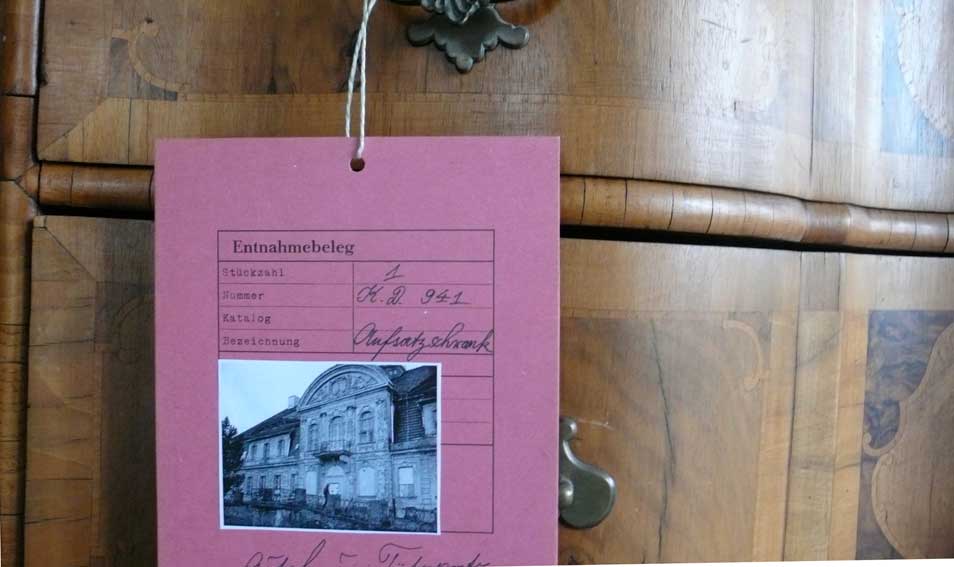 Entnahmebeleg
Stückzahl 1
Nummer K. D. 941
Katalog
Bezeichnung Aufsatzschrank